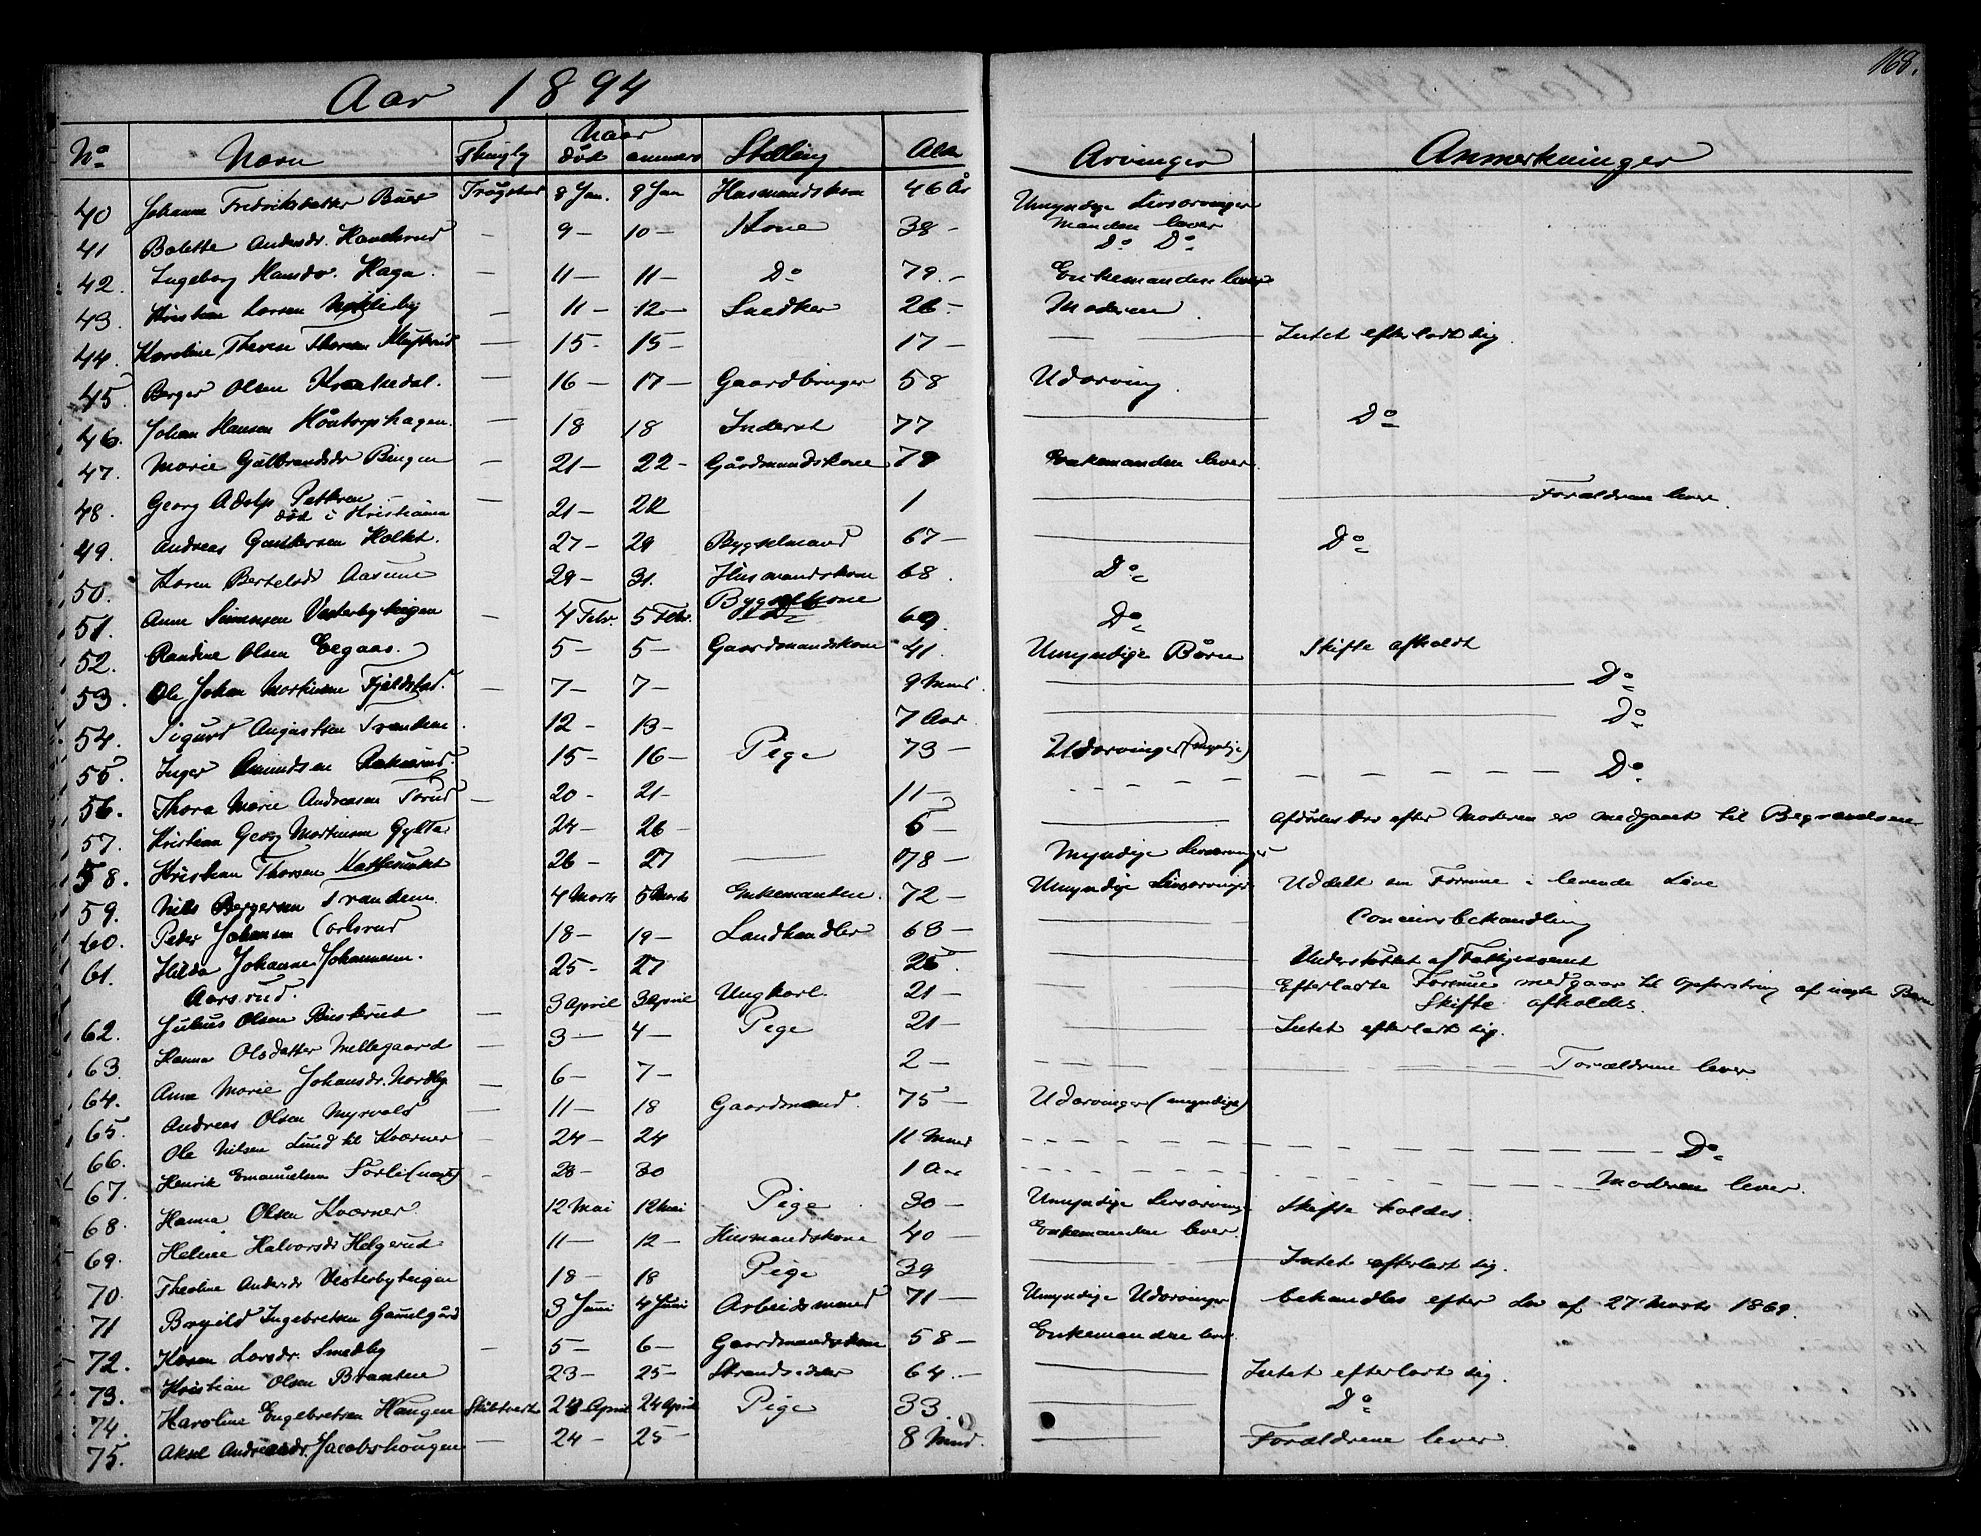 168.
Aar 1894
No Navn Thinglag Naar død anmeldt Stilling Alder Arvinger Anmerkninger
40 Johanne Fredriksdatter Trøgstad 8 Jan. 9 Jan Husmandskone 46 År Umyndige Livsarvinger
Manden lever
41 Bolette Andersdr. — 9 — 10 — Kone 38 — Do Do
42. Ingeborg Hansdr. Haga. — 11 — 11 — Do 79. — Enkemanden lever
43. Kristian Larsen — 11 — 12 — Snedker 26 — Moderen
44. Karoline Therese Thoresen — 15 — 15 — 17 — — — Intet efterladt sig
45. Berger Olsen Krakedal. — 16 — 17 — Gaardbruger 58 Udarving.
46. Johan Hansen Høntorphagen. — 18 18 Inderst 77 — Do
47. Marie Gulbrandsdr Bingen — 21 — 22 — Gårdmandskone Enkemanden lever
48. Georg Adolf Pettersen — 21 — 22 1 — Forældrene lever.
død i Kristiania
49. Andreas Gundersen 27 — 29 Bygselmand 67 — — Do
50. Karen Bertelsdr Aasum 29 — 31. Husmandskone 68. Do
51. Anne Simensen Vesterbyteigen — 4 Febr. 5 Febr. 69 Do
52. Randine Olsen Eegaas. 5 — 5 — Gaardmandskone 41. Umyndige Børn Skifte afholdt
53. Ole Johan Martinsen Fjeldstad. — 7 — 7 — 9 Mnd. — Do
54. Sigurd Augustsen Tranden 12 — 13 — 7 Aar. — Do
55. Inger Amundsen 15 — 16 — Pige 73 — Udarvinger (myndige)
— Do
56. Thora Marie Andreasen Torud — 20 — 21 — 11 —
57. Kristian Georg Martinsen 24 — 26 — 6 — — efter Moderen er medgaaet til Begravelsen
58. Kristian Thorsen 26 — 27 — 78 — Myndige Livsarvinger
59. Nils Bergersen Tranden. 4 Marts 5 Marts Enkemanden. 72 — Umyndige Livsarvinger Uddelt sin Formue i levende Live
60. Peder Johansen Carlsrud 18 — 19 — Landhandler 63 — — Concursbehandling
61. Hilda Johanne Johannesen. 25 — 27 26. Understøttet af Fattigvæsenet
Aarsrud.
62. Julius Olsen Buskrud — 3 April 3 April Ungkarl. 21 — — Efterladte Formue medgaar til Opfostring af uægte Barn
Skifte afholdes.
63. Hanna Olsdatter Mellegaard — 3 — 4 — Pige 21 — — Intet efterladt sig.
64. Anne Marie Johansdr. Nordby — 6 — 7 — 2 — — Forældrene lever.
65. Andreas Olsen Myrvold — 11 — 18 Gaardmand. 75 — Udarvinger (myndige)
66. Ole Nilsen Lund til Kværner — 24 — 24 11 Mnd — Do
67. Henrik Emanuelsen Sørli (uægte) — 28 — 30 1 Aar — Moderen lever.
68. Hanna Olsen Kværner. 12 Mai 12 Mai Pige 30 — Umyndige Livsarving Skifte holdes.
69. Heline Halvorsdr Helgerud 11 — 12 — Husmandskone 40 — Enkemanden lever.
70. Theoline Andersdr Vesterbyteigen 18 — 18 Pige 39 — Intet efterladt sig.
71 Ingebretsen Gamelgård 3 Juni 4 Juni Arbeidsmand 71 — Umyndige Udarvinger behandles efter Lov af 27 Marts 1869.
72. Karen Larsdr. Smedby — 5 — 6 — Gaardmandskone 58 — Enkemanden lever.
73. Kristian Olsen Braaten 23 — 25 — Strandsidder 64. — — Intet efterladt sig.
74. Karoline Engebretsen Haugen Skibtvedt 23 April 24 April Pige 33. — Do
75. Aksel Andreasdr. Jacobshaugen — 24 — 25 — 8 Mnd. — Forældrene lever.